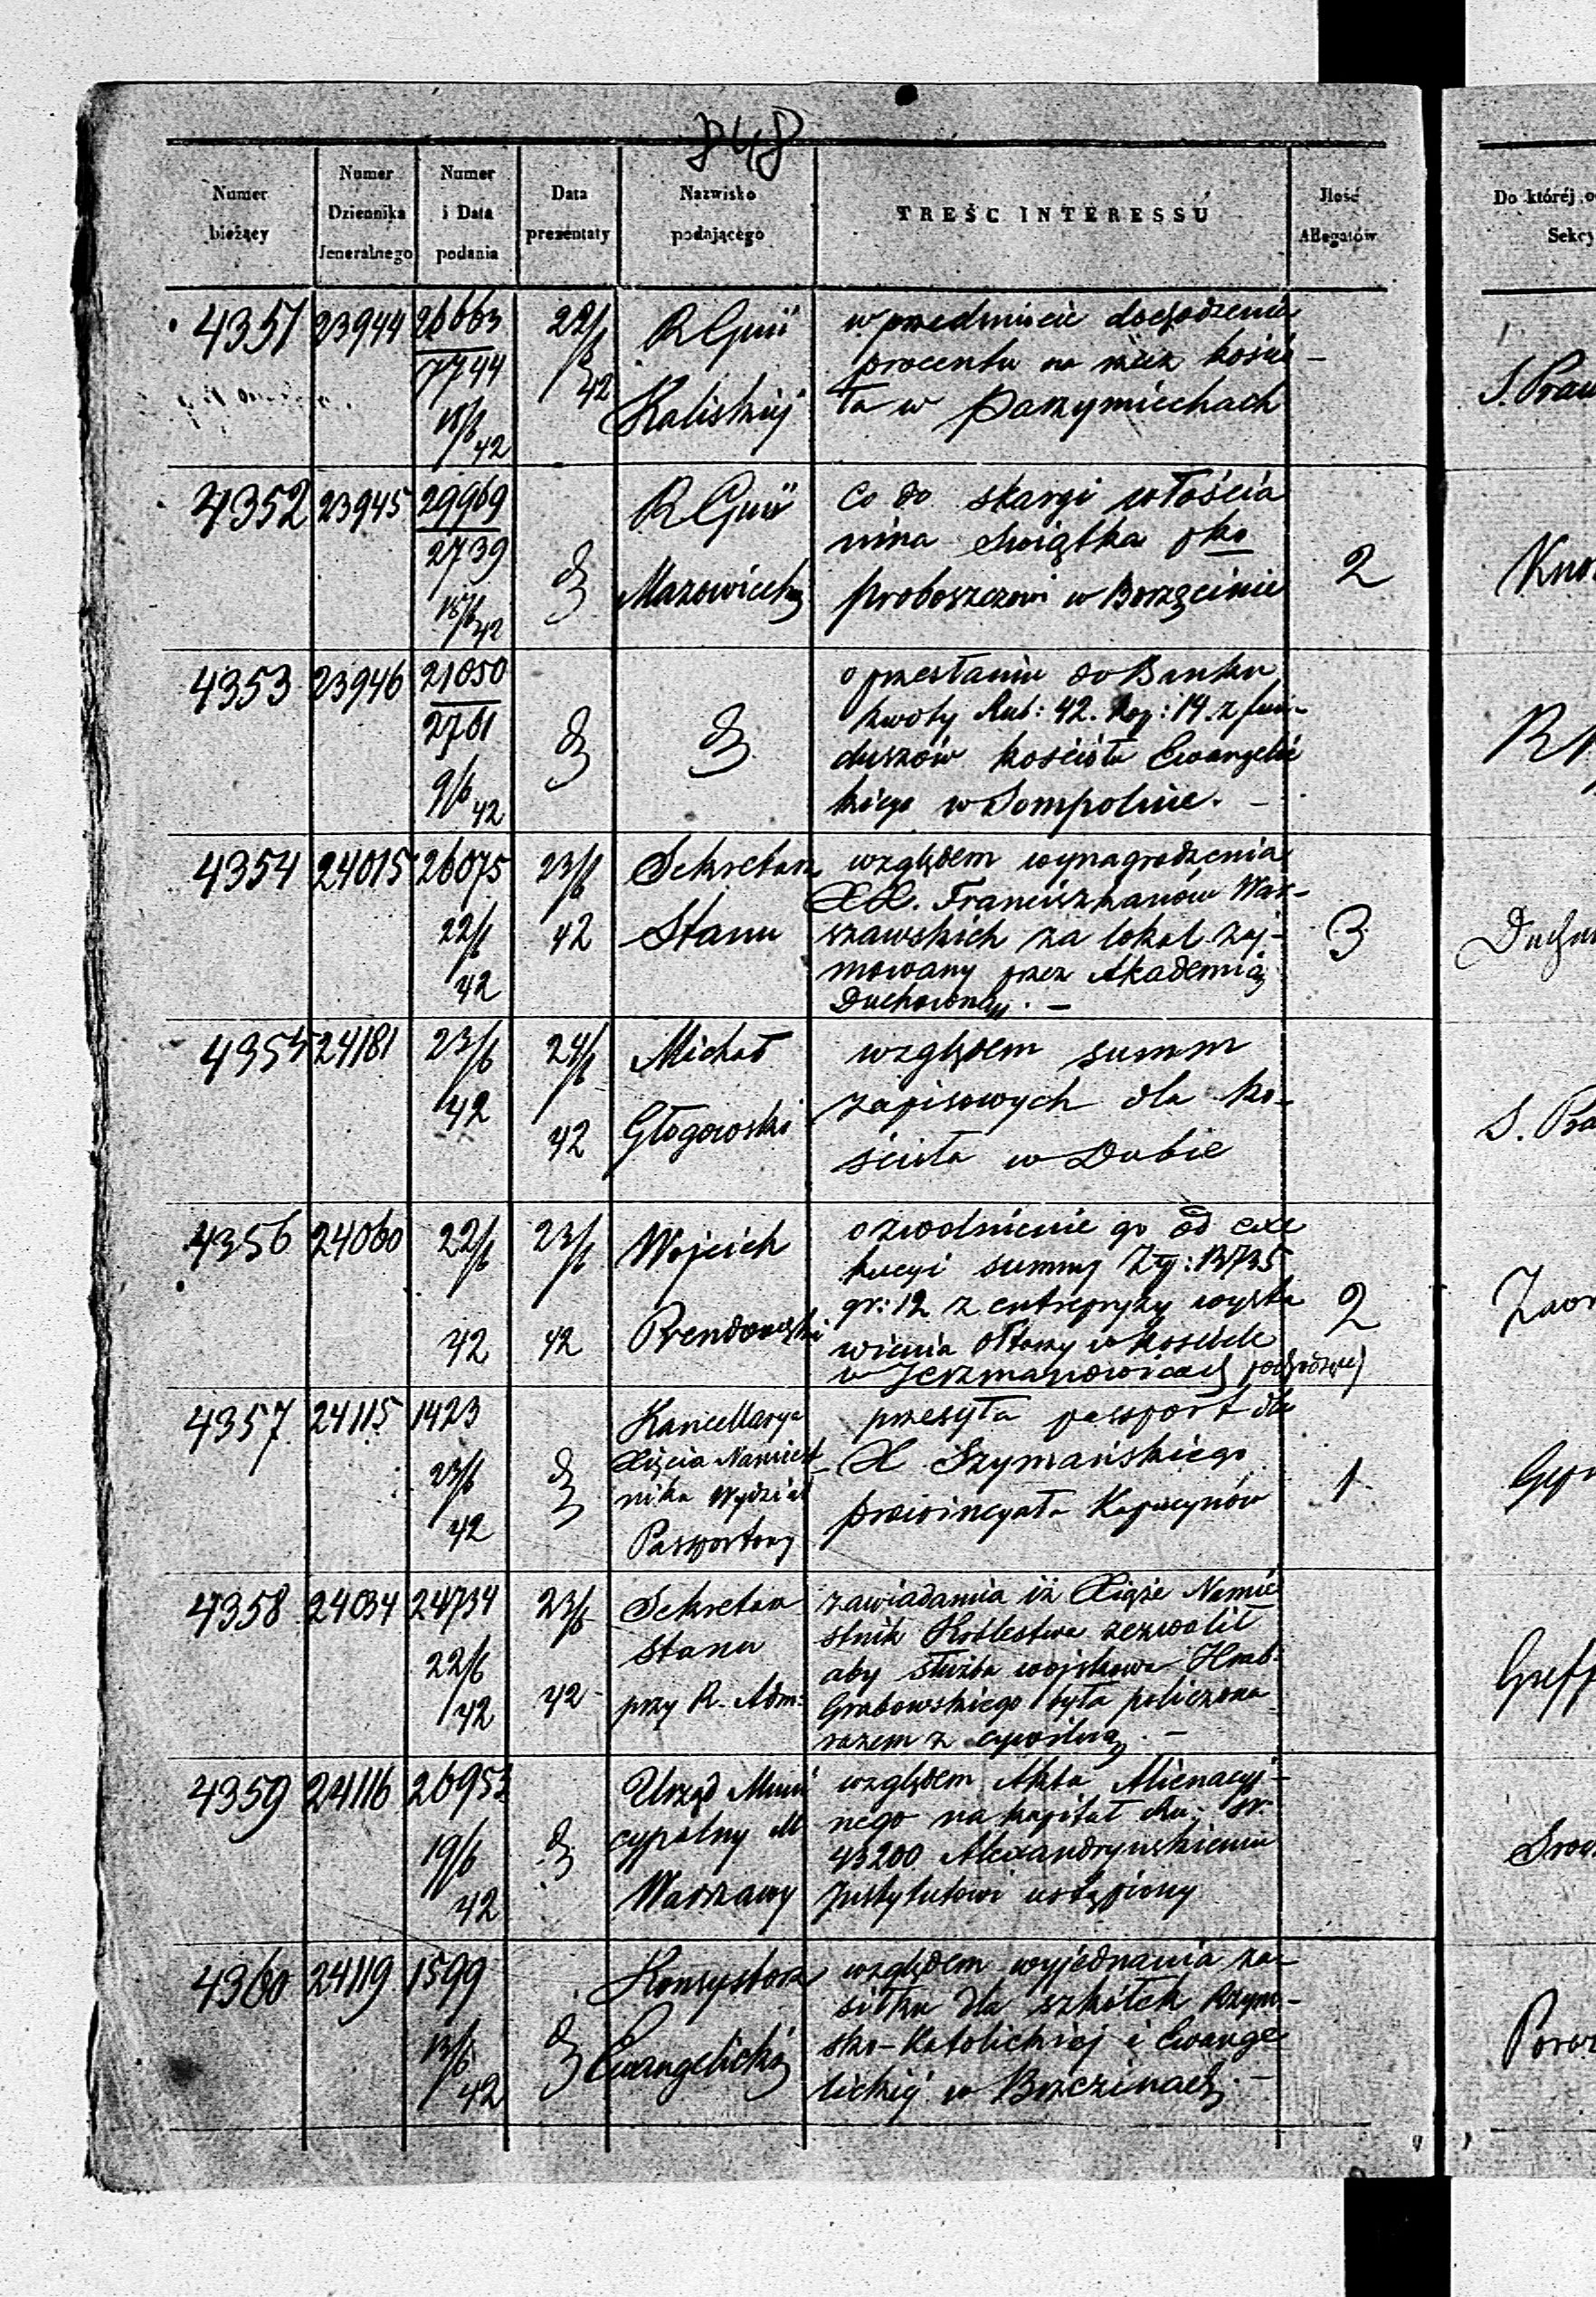 848
Numer bieżący
Numer Dziennika Jeneralnego
Numer i Data podania
Data prezentaty
Nazwisko podającego
TREŚĆ INTERESSU
Ilość Allegatów
Do któréj
Sekcy
4351 23944 26663
7744
18/6 42
22/6 42
R Gun
Kaliskiej
w przedmiocie dochodzenia
procentu na rzecz kościo
ła w Parzymiechach
S. Praw
4352 23945 29969
2739
18/6 42
R Gun
Mazowieckiej
Co do skargi włościa
nina Świątka pko
proboszczowi w Borzęcinie
2
4353 23946 21050
2761
9/6 42
o przesłaniu do Banku
kwoty Rub: 42. kop: 14. z fun-
duszów kościoła Ewangelic
kiego w Sompolnie. -
4354 24015 26075
22/6
42
23/6
42
Sekretarz
Stanu
względem wynagrodzenia
XX. Franciszkanów War-
szawskich za lokal zaj-
mowany przez Akademią
Duchowną. -
3
Duchow
4355 24181 23/6
42
24/6
42
Michał
Głogowski
względem summ
zapisowych dla ko-
ścioła w Dubie
S. Pra
4356 24060 22/6
42
23/6
42
Wojciech
Prendowski
o zwolnienie go od exe
kucyi summy Złp: 13735
gr: 12 z entrepryzy wysta
wienia ołtarzy w kościele
w Jerzmanowicach pochodzącej
2
4357 24115 1423
23/6
42
Kancellarya
Xięcia Namiest-
nika Wydział
Passportowy
przesyła passport dla
X Szymańskiego
prowincyała Kapucynów
1
4358 24034 24734
22/6
42
23/6
42
Sekretarz
Stanu
przy R. Adm:
zawiadamia iż Xiąże Namie
stnik Królestwa zezwolił
aby służba wojskowa Hrab:
Grabowskiego była policzona
razem z cywilną. -
4359 24116 26953
19/6
42
Urząd Muni
cypalny M
Warszawy
względem Akta Alienacyj-
nego na kapitał Ru: sr.
43200 Alexandryńskiemu
Instytutowi ustąpiony
4360 24119 1599
13/6
42
Konsystorz
Ewangelicki
względem wyjednania za-
siłku dla szkółek Rzym-
sko-Katolickiej i Ewange
lickiej w Brzezinach. -